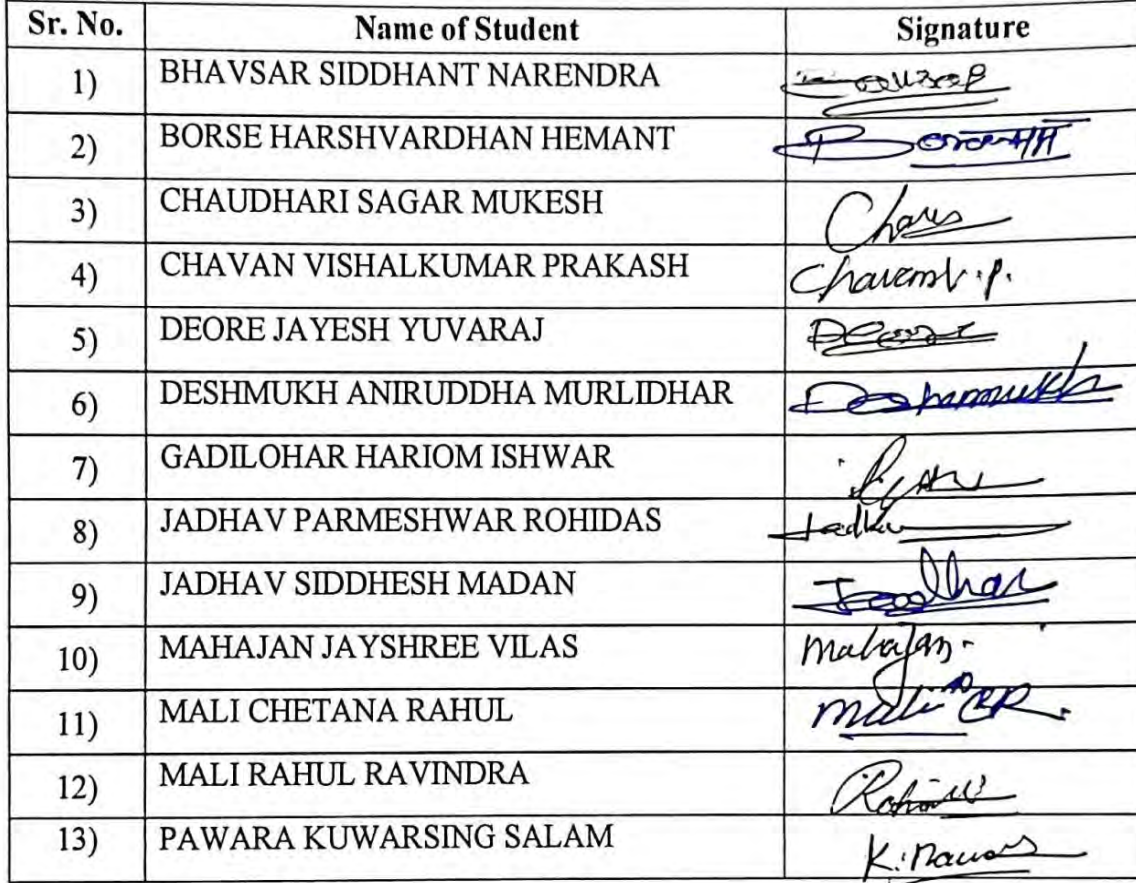 Sr. No. Name of Student Signature
1) BHAVSAR SIDDHANT NARENDRA
2) BORSE HARSHVARDHAN HEMANT
3) CHAUDHARI SAGAR MUKESH
4) CHAVAN VISHALKUMAR PRAKASH Chavan V.P.
5) DEORE JAYESH YUVARAJ Deore
6) DESHMUKH ANIRUDDHA MURLIDHAR Deshamukh
7) GADILOHAR HARIOM ISHWAR
8) JADHAV PARMESHWAR ROHIDAS
9) JADHAV SIDDHESH MADAN Jadhav
10) MAHAJAN JAYSHREE VILAS Mahajan
11) MALI CHETANA RAHUL Mali CR.
12) MALI RAHUL RAVINDRA
13) PAWARA KUWARSING SALAM